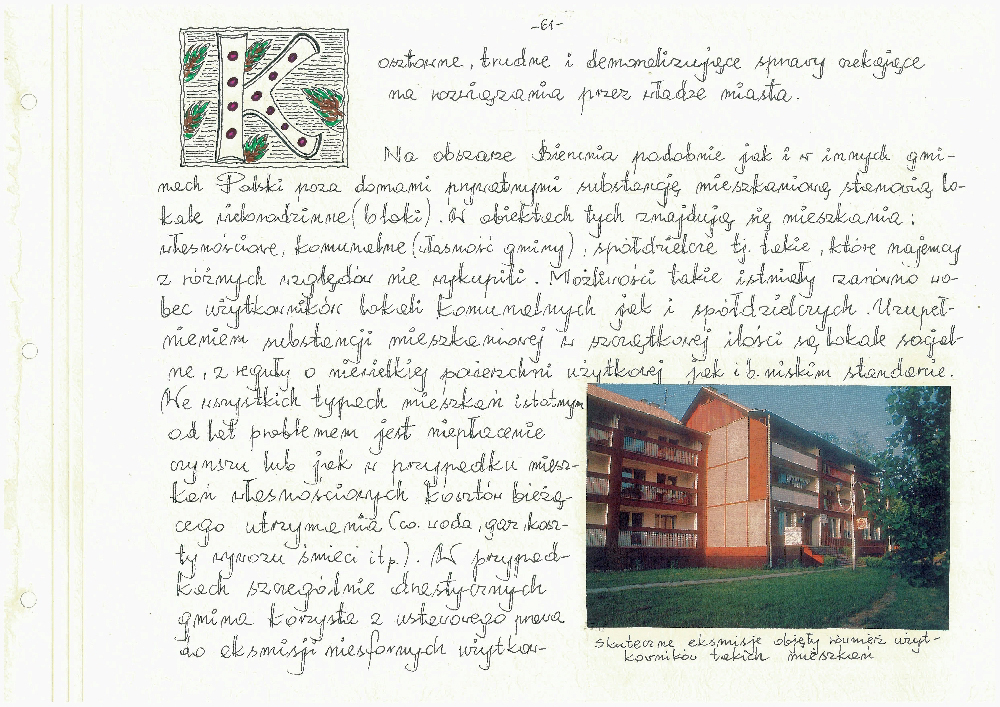 -61-
Kosztowne, trudne i demoralizujące sprawy czekające
na rozwiązania przez władze miasta.
Na obszarze Bierunia podobnie jak i w innych gmi-
nach Polski poza domami prywatnymi substancję mieszkaniową stanowią lo-
kale wielorodzinne (bloki). W obiektach tych znajdują się mieszkania:
własnościowe, komunalne (własność gminy), spółdzielcze tj. takie, które najemcy
z różnych względów nie wykupili. Możliwości takie istniały zarówno wo-
bec użytkowników lokali komunalnych jak i spółdzielczych. Uzupeł-
nieniem substancji mieszkaniowej w szczątkowej ilości są lokale socjal-
ne, z reguły o niewielkiej powierzchni użytkowej jak i b. niskim standarcie.
We wszystkich typach mieszkań istotnym
od lat problemem jest niepłacenie
czynszu lub jak w przypadku miesz-
kań własnościowych kosztów bieżą-
cego utrzymania (co. woda, gaz, kosz-
ty wywozu śmieci itp.). W przypad-
kach szczególnie drastycznych
gmina korzysta z ustawowego prawa
do eksmisji niesfornych użytkow-
skuteczne eksmisje objęły również użyt-
kowników takich mieszkań